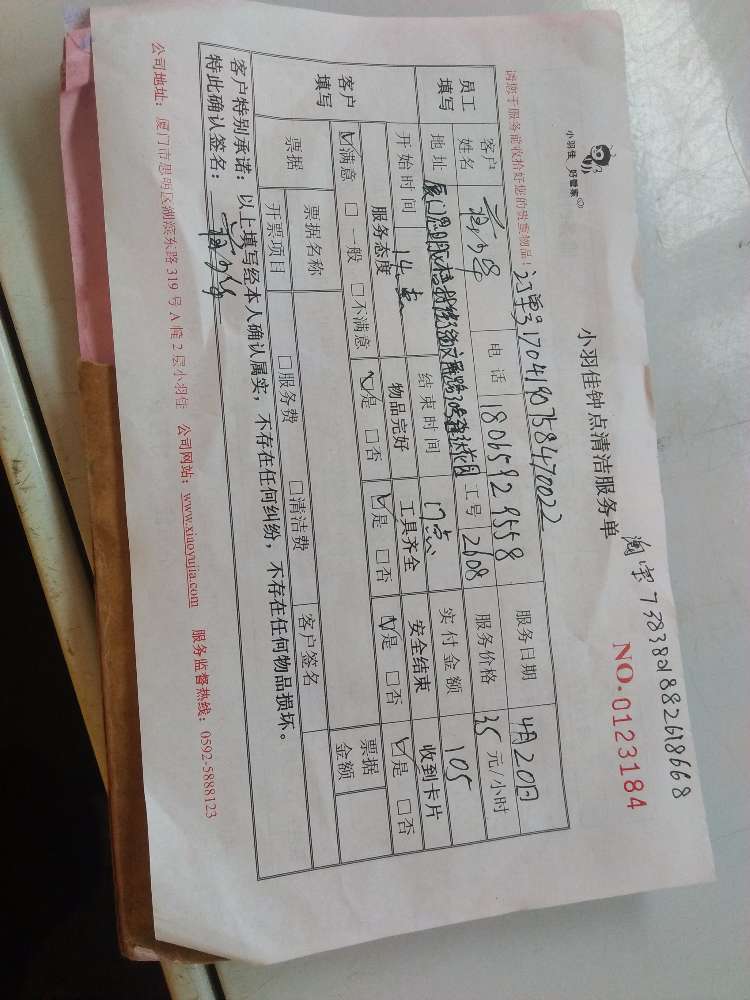 小羽佳 好管家
小羽佳钟点清洁服务单
淘宝
NO.0123184
请您于服务前收拾好您的贵重物品!
订单号1704190758470022
员工填写
客户姓名
电话 18065929558
服务日期 4月20日
地址
工号 2608
服务价格 35元/小时
开始时间 14点
结束时间 17点
实付金额 105
客户填写
服务态度
物品完好
工具齐全
安全结束
收到卡片
☑满意 □一般 □不满意
☑是 □否
☑是 □否
☑是 □否
☑是 □否
票据
票据名称
客户签名
票据金额
开票项目
□服务费
□清洁费
客户特别承诺:以上填写经本人确认属实,不存在任何纠纷,不存在任何物品损坏。
特此确认签名:
公司地址:厦门市思明区湖滨东路319号A幢2层小羽佳 公司网站:www.xiaoyujia.com 服务监督热线:0592-5888123